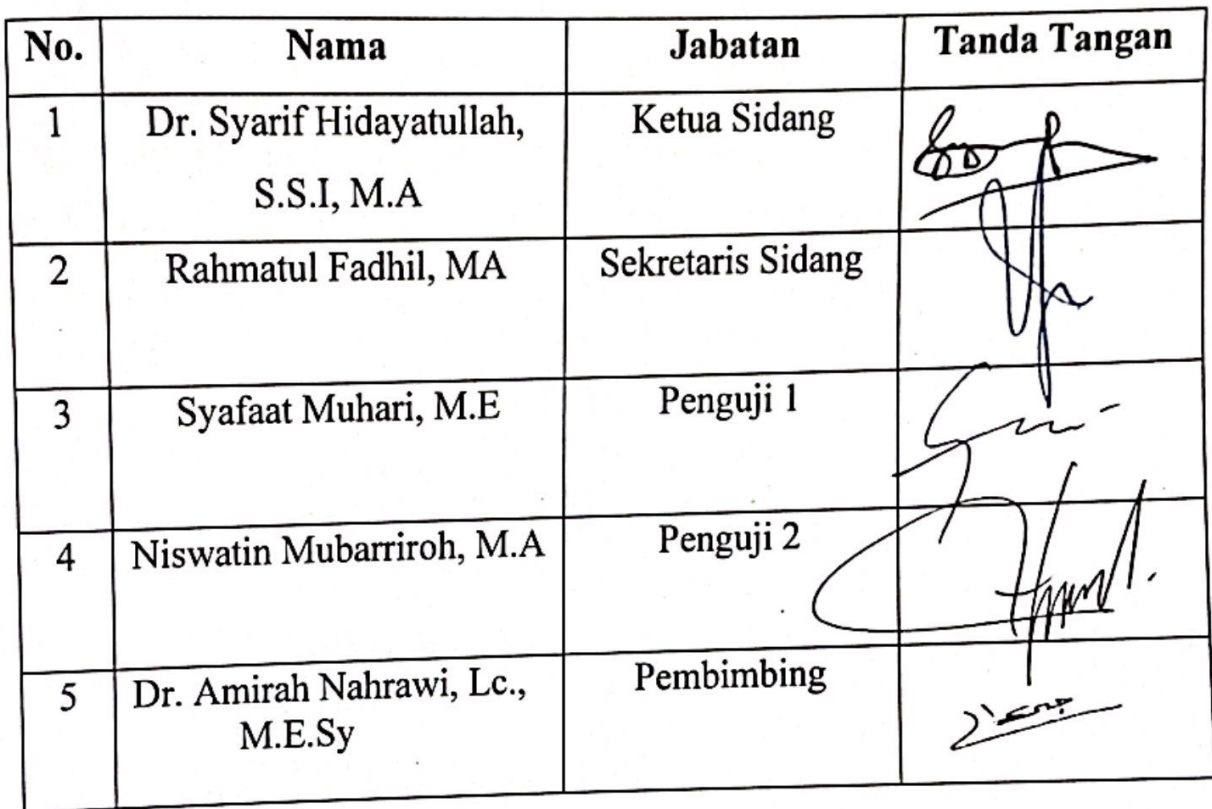 No. Nama Jabatan Tanda Tangan
1 Dr. Syarif Hidayatullah, Ketua Sidang
S.S.I, M.A
2 Rahmatul Fadhil, MA Sekretaris Sidang
3 Syafaat Muhari, M.E Penguji 1
4 Niswatin Mubarriroh, M.A Penguji 2
5 Dr. Amirah Nahrawi, Lc., Pembimbing
M.E.Sy